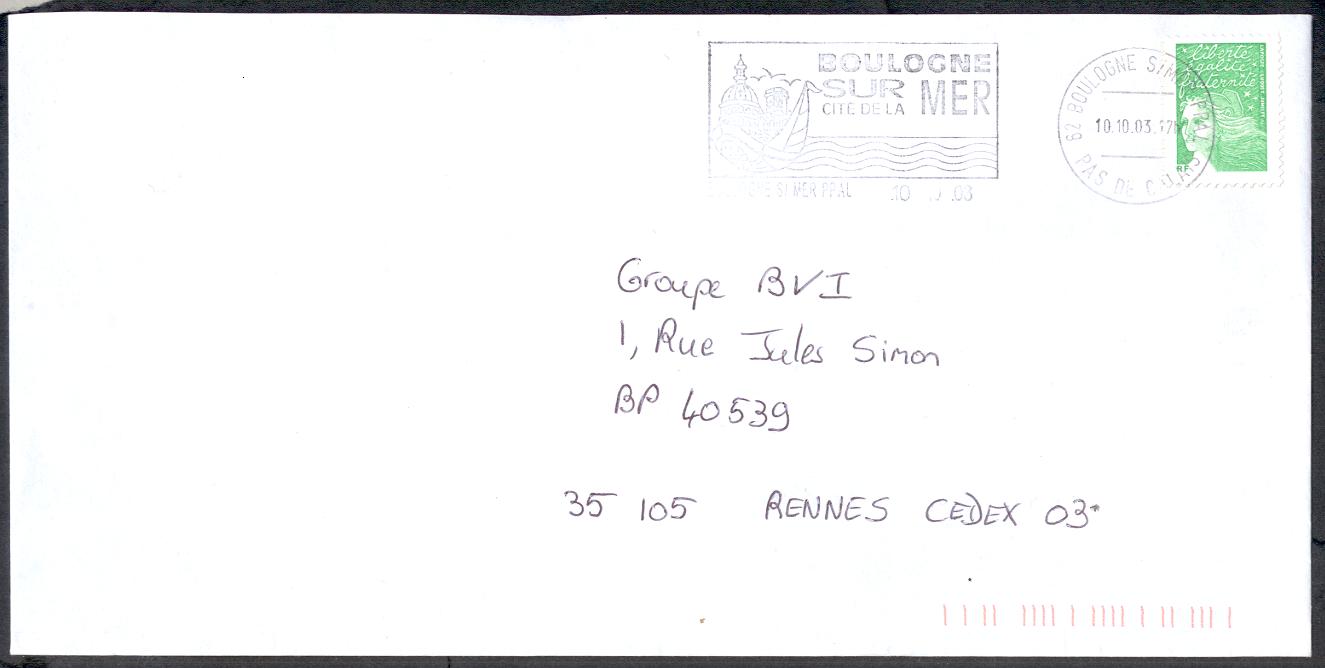 BOULOGNE
SUR MER
CITÉ DE LA
S/MER PPAL 10 .03
62 BOULOGNE S/M PPAL
10.10.03
PAS DE CALAIS
liberté
égalité
fraternité
RF
Groupe BVI
1, Rue Jules Simon
BP 40539
35 105 RENNES CEDEX 03